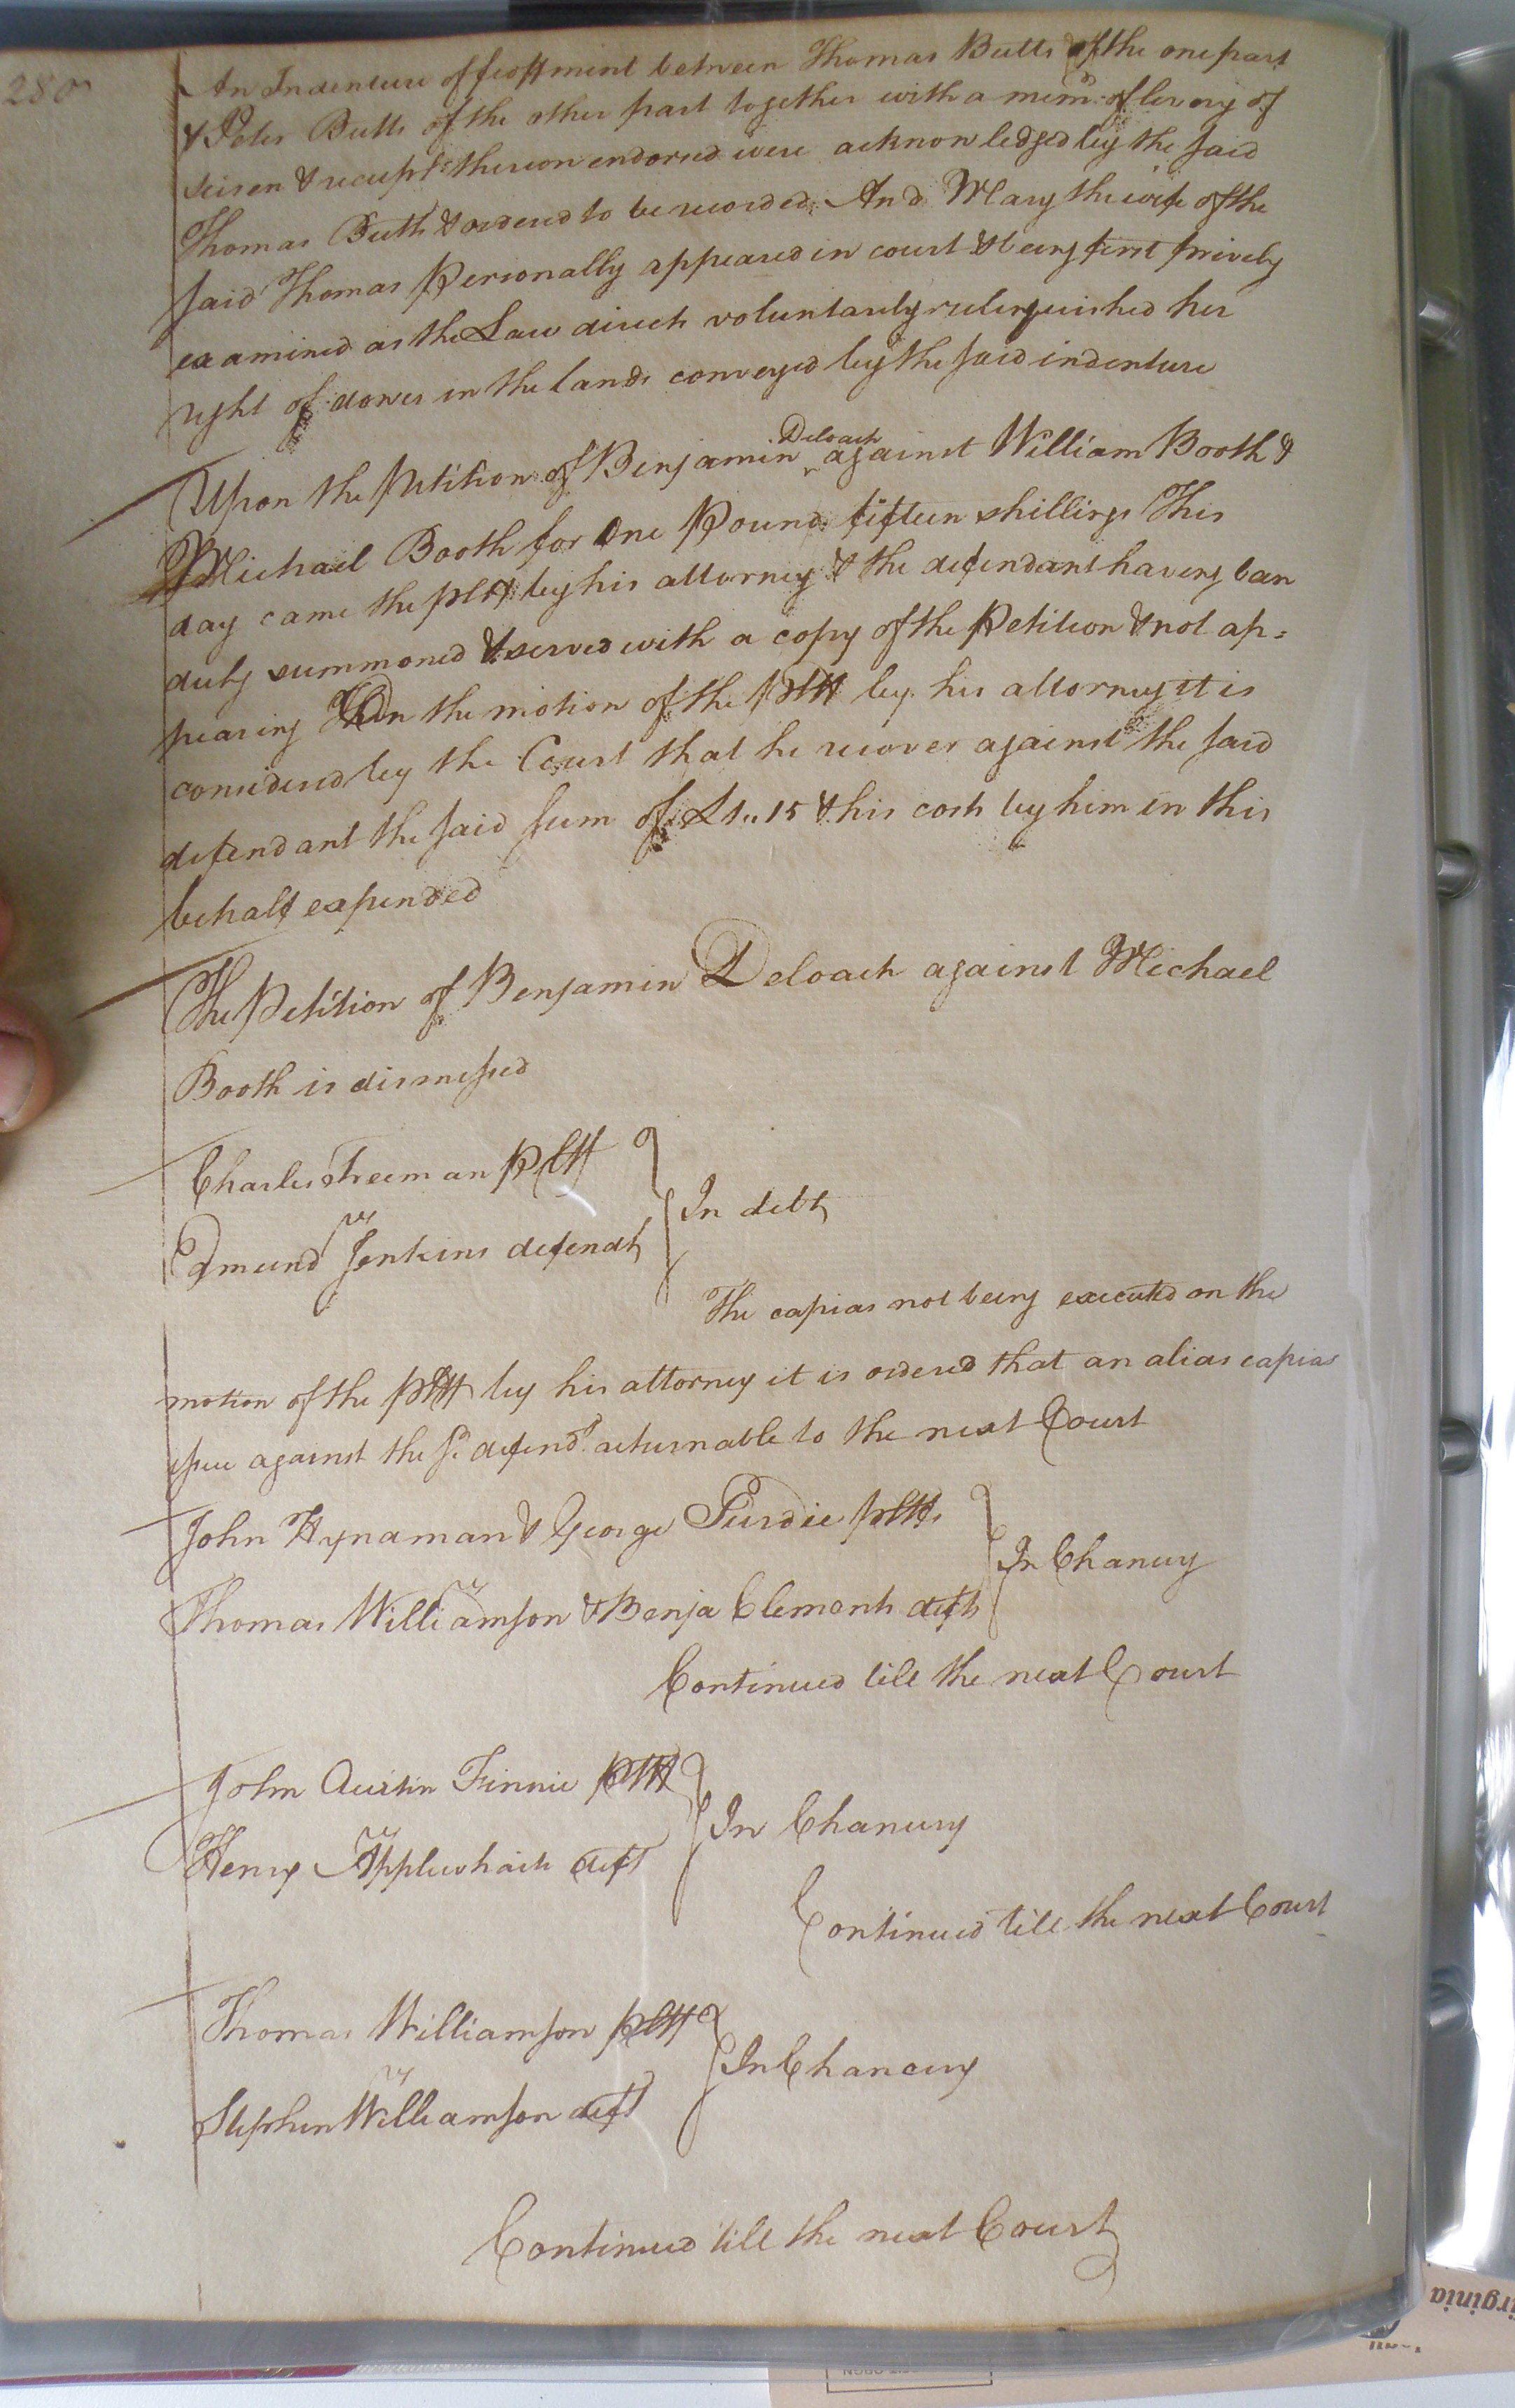 280
An Indenture of feoffment between Thomas Butts of the one part
& Peter Butts of the other part together with a mem.o of livery of
seisen & receipt thereon endorsed were acknowledged by the said
Thomas Butts & ordered to be recorded. And Mary the wife of the
said Thomas Personally appeared in court & being first privily
examined as the Law direct voluntarily relinquished her
right of dower in the lands conveyed by the said indenture
Upon the Petition of Benjamin Deloach against William Booth &
Michael Booth for One Pound fifteen shillings This
day came the pltf by his attorney & the defendant having ban
duly summoned & served with a copy of the Petition & not ap=
pearing On the motion of the pltf by his attorney it is
considered by the Court that he recover against the said
defendant the said sum of £1..15 & his costs by him in this
behalf expended
The Petition of Benjamin Deloach against Michael
Booth is dismissed
Charles Freeman pltf
vs
In debt
Edmund Jenkins defendt
The capias not being executed on the
motion of the pltf by his attorney it is ordered that an alias capias
issue against the sd defendt returnable to the next Court
John Hynaman & George Purdie pltfs
vs
In Chancery
Thomas Williamson & Benja Clements defts
Continued till the next Court
John Austin Finnie pltf
vs
In Chancery
Henry Applewhaite deft
Continued till the next Court
Thomas Williamson pltf
vs
In Chancery
Stephen Williamson deft
Continued till the next Court